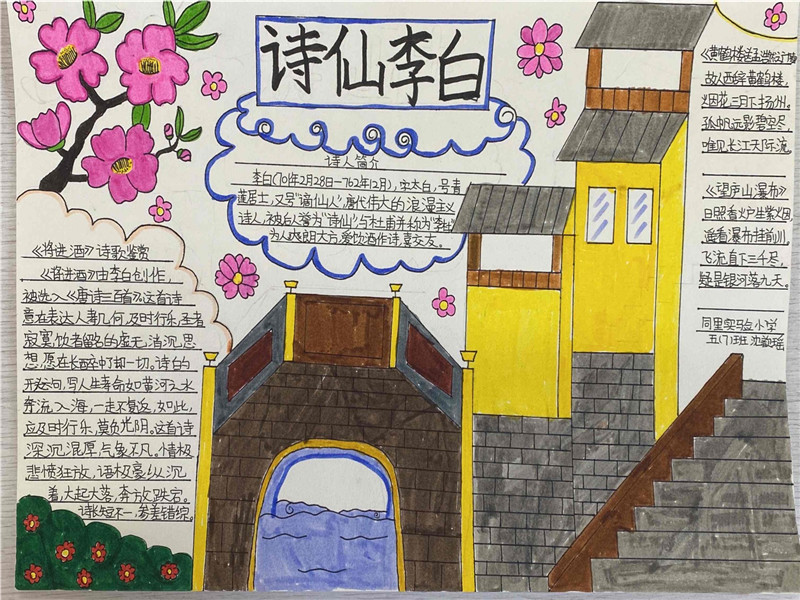 诗仙李白
诗人简介
李白(701年2月28日—762年12月),字太白,号青
莲居士,又号"谪仙人",唐代伟大的浪漫主义
诗人,被后人誉为"诗仙",与杜甫并称为"李杜"
为人爽朗大方,爱饮酒作诗,喜交友。
《将进酒》诗歌鉴赏
《将进酒》由李白创作,
被选入《唐诗三百首》这首诗
意在表达人寿几何,及时行乐,圣者
寂寞,饮者留名的虚无,消沉,思
想,愿在长醉中了却一切。诗的
开头句,写人生寿命如黄河之水
奔流入海,一去不复返,如此,
应及时行乐,莫负光阴。这首诗
深沉浑厚,气象不凡。情极
悲愤狂放,语极豪纵沉
着,大起大落,奔放跌宕。
诗长短不一,参差错综。
《黄鹤楼送孟浩然之广陵》
故人西辞黄鹤楼,
烟花三月下扬州。
孤帆远影碧空尽,
唯见长江天际流。
《望庐山瀑布》
日照香炉生紫烟,
遥看瀑布挂前川。
飞流直下三千尺,
疑是银河落九天。
同里实验小学
五(7)班 沈